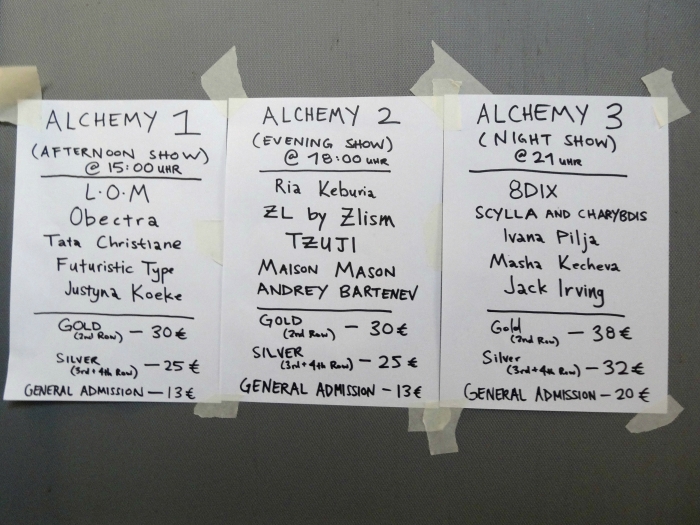 ALCHEMY 1
(AFTERNOON SHOW)
@ 15:00 UHR
L·O·M
Obectra
Tata Christiane
Futuristic Type
Justyna Koeke
GOLD (2nd Row) — 30 €
SILVER (3rd + 4th Row) — 25 €
GENERAL ADMISSION — 13 €
ALCHEMY 2
(EVENING SHOW)
@ 18:00 UHR
Ria Keburia
ZL by Zlism
TZUJI
MAISON MASON
ANDREY BARTENEV
GOLD (2nd Row) — 30 €
SILVER (3rd + 4th Row) — 25 €
GENERAL ADMISSION — 13 €
ALCHEMY 3
(NIGHT SHOW)
@ 21 UHR
8DIX
SCYLLA AND CHARYBDIS
Ivana Pilja
Masha Kecheva
Jack Irving
Gold (2nd Row) — 38 €
Silver (3rd + 4th Row) — 32 €
GENERAL ADMISSION — 20 €